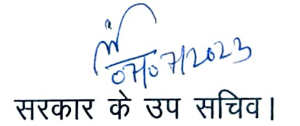 07/07/2023
सरकार के उप सचिव।